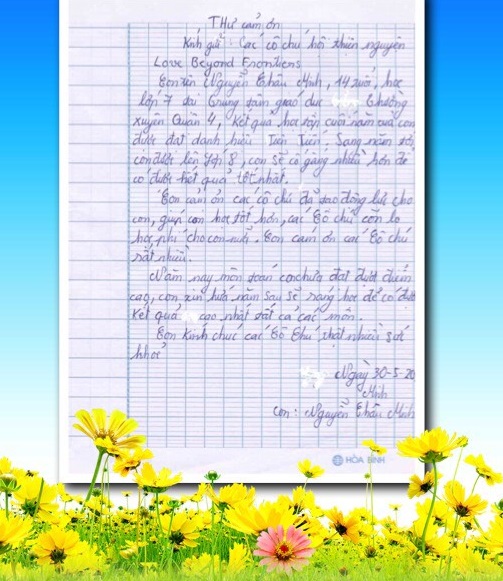 Thư cảm ơn
Kính gửi: Các cô chú hội thiện nguyện
Love Beyond Frontiers
Con tên Nguyễn Chấn Minh, 14 tuổi, học
lớp 7 tại Trung tâm giáo dục thường
xuyên Quận 4, kết quả học tập cuối năm qua con
được đạt danh hiệu Tiên Tiến. Sang năm tới,
con được lên lớp 8, con sẽ cố gắng nhiều hơn để
có được kết quả tốt nhất.
Con cảm ơn các cô chú đã tạo động lực cho
con, giúp con học tốt hơn, các cô chú còn lo
học phí cho con nữa. Con cảm ơn các cô chú
rất nhiều.
Năm nay môn toán con chưa đạt được điểm
cao, con xin hứa năm sau sẽ ráng học để có được
kết quả cao nhất tất cả các môn.
Con kính chúc các Cô Chú thật nhiều sức
khỏe
Ngày 30-5-20
Minh
Con: Nguyễn Chấn Minh
HÒA BÌNH